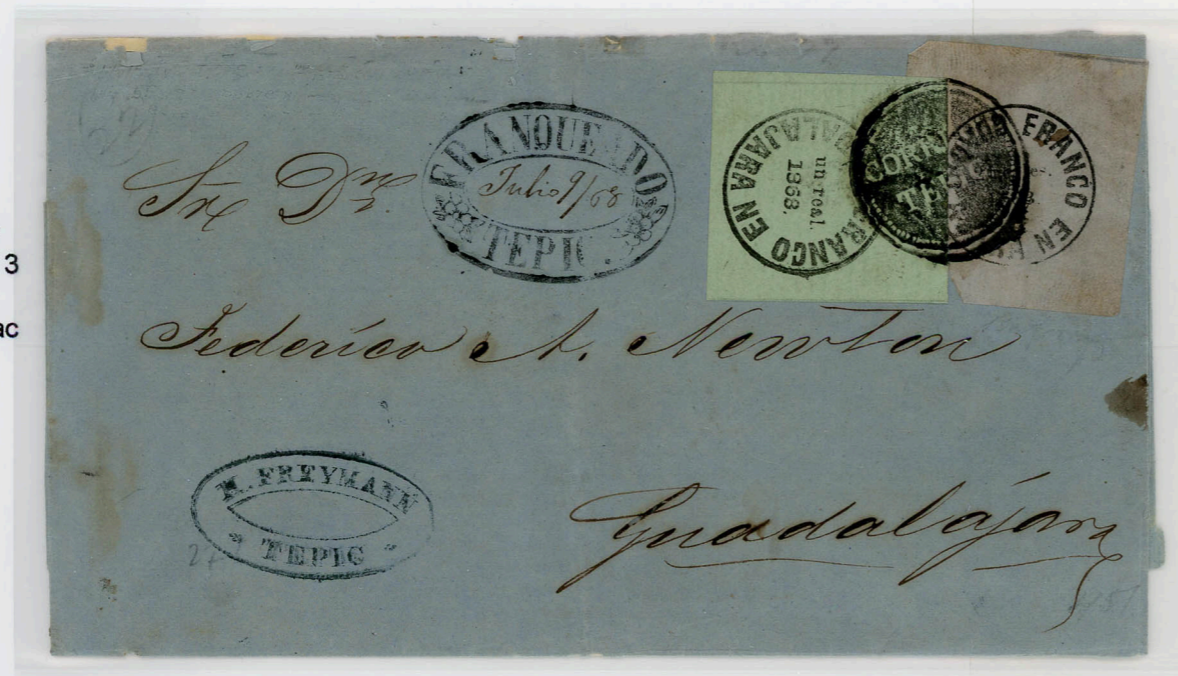 3
ac
FRANQUEADO
Julio 9/68
TEPIC
FRANCO EN GUADALAJARA
un real.
1868.
CORREOS
FRANCO EN
Sr Dn
Federico A. Newton
M. FREYMANN
TEPIC
Guadalajara